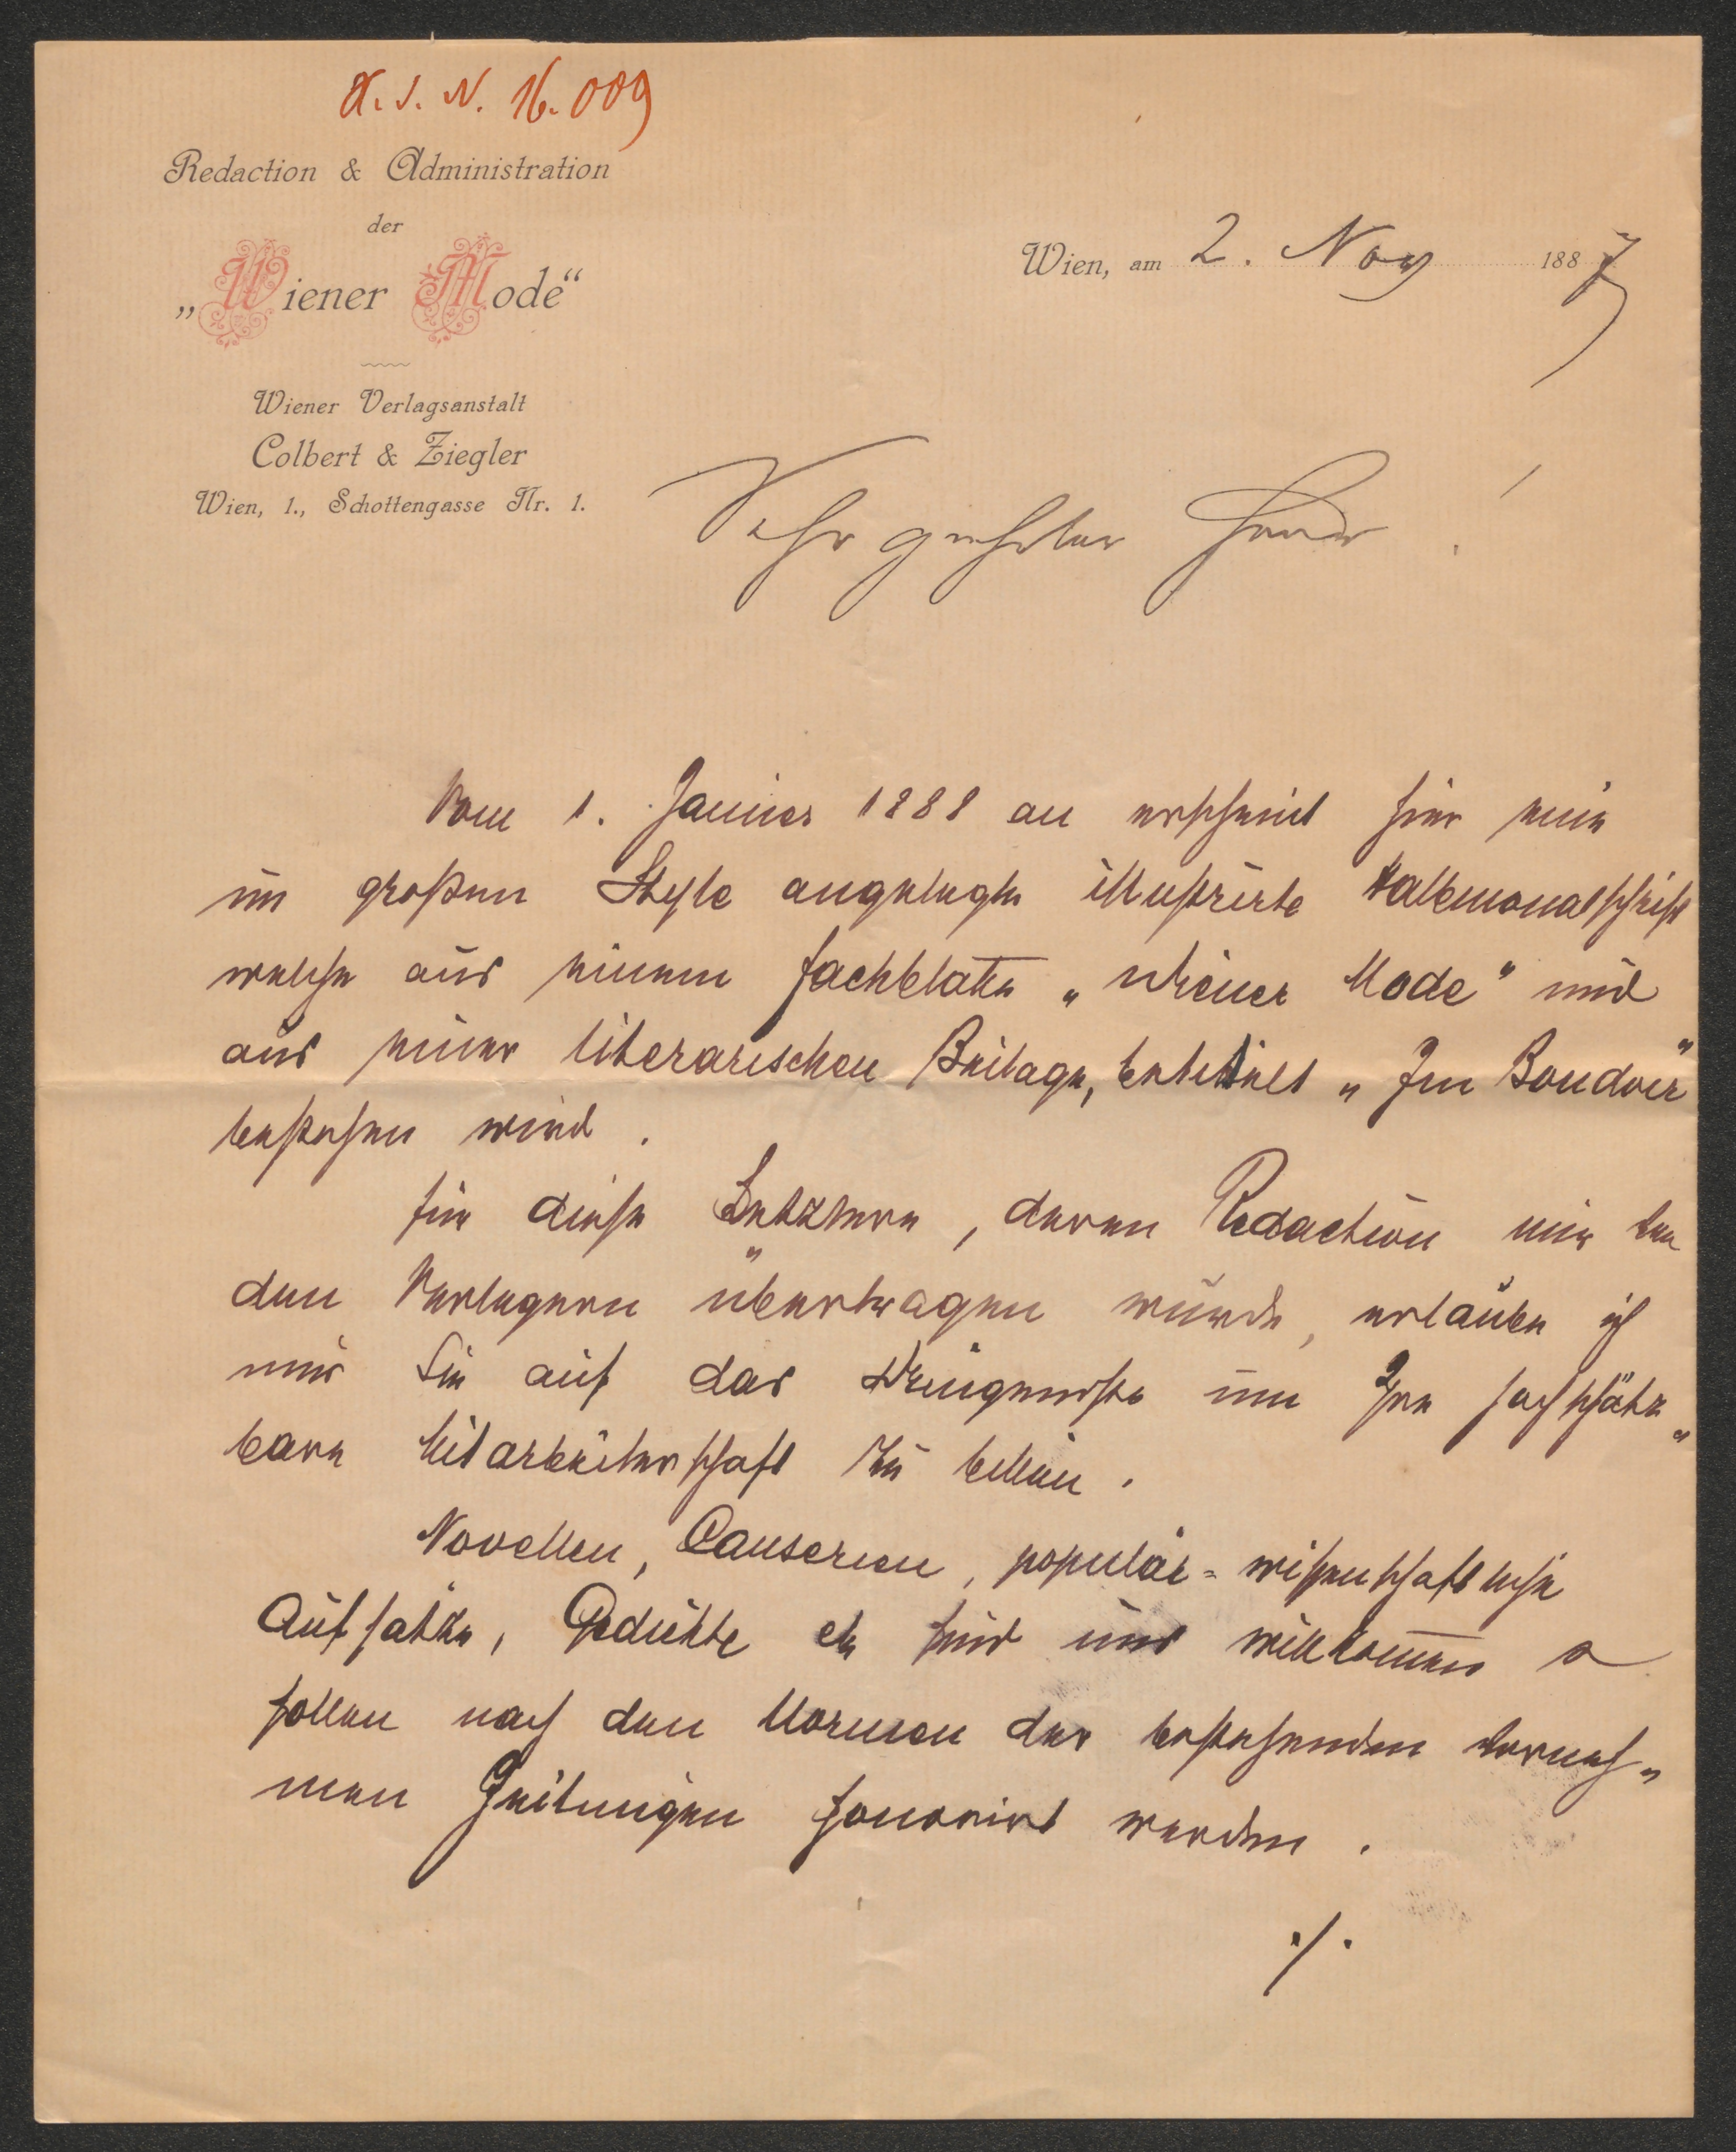 H. I. N. 16.009
Redaction & Administration
der
„Wiener Mode“
Wiener Verlagsanstalt
Colbert & Ziegler
Wien, 1., Schottengasse Nr. 1.
Wien, am 2. Nov 1887
Sehr geehrter Herr!
Vom 1. Januar 1888 an erscheint hier eine
im großen Style angelegte illustrirte Halbmonatschrift
welche aus einem Fachblatte „Wiener Mode“ und
aus einer literarischen Beilage, betitelt „Im Boudoir“
bestehen wird.
Für diese Letztere, deren Redaction mir von
den Verlegern übertragen wurde, erlaube ich
mir Sie auf das Dringendste um Ihre hochschätz„
bare Mitarbeiterschaft zu bitten.
Novellen, Causerien, populär=wissenschaftliche
Aufsätze, Gedichte etc sind uns willkommen u
sollen nach den Normen der bestehenden vorneh„
men Zeitungen honorirt werden.
./.